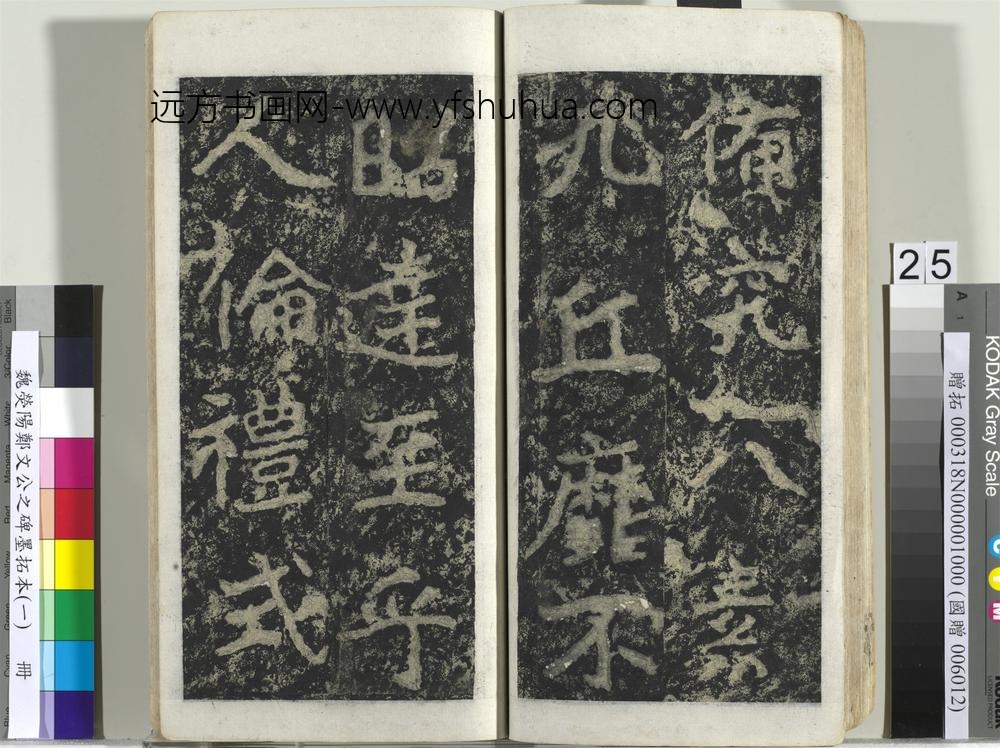 备究八素
九丘靡不
昭達至乎
人倫禮式
远方书画网-www.yfshuhua.com
魏滎陽鄭文公之碑墨拓本(一) 冊
25
贈拓 000318N000001000 (國贈 006012)
KODAK Gray Scale
A 1
Black
3/Color
White
Magenta
Red
Yellow
Green
Cyan
Blue
C
Y
M